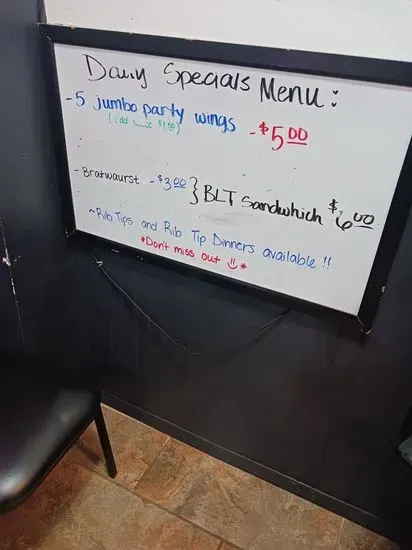 Daily Specials Menu:
- 5 jumbo party wings - $5.00
(add sauce $1.00)
- Bratwaurst - $3.00 } BLT Sandwhich $6.00
~ Rib Tips and Rib Tip Dinners available !!
*Don't miss out *